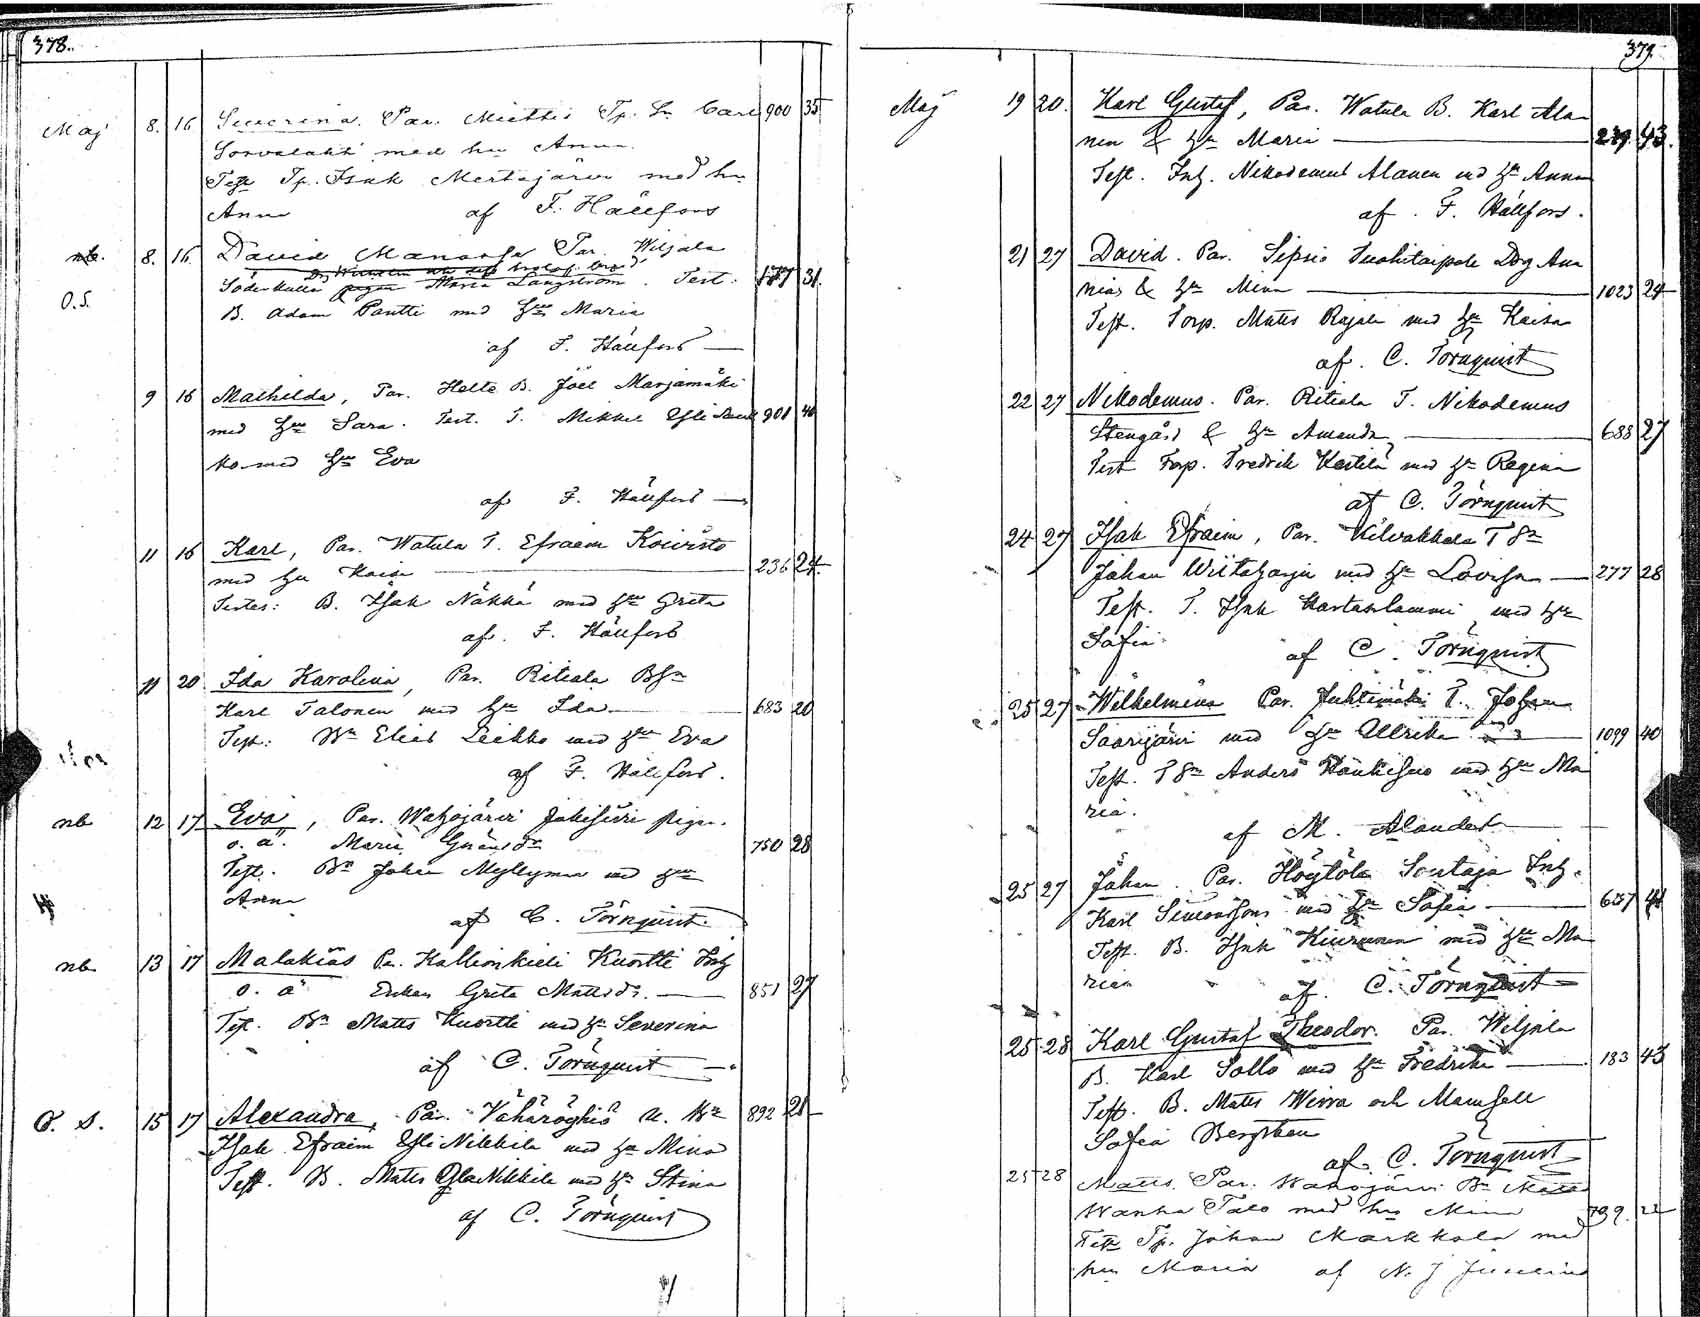 378.
Maj 8. 16 Severina. Par. Miettis Tp. Carl 900 35
Sorvalahti med hu Anna.
Test Tp. Isak Mertajärvi med hu
Anna af F. Hällfors
nb. 8. 16 David Manassa Par. Wiljala
O.S. Söderkulla pigan Maria Långström. Test. 177 31.
B. Adam Pantti med hu Maria
af F. Hällfors
9 16 Mathilda, Par. Helte B. Joel Marjamäki
med hu Sara. Test. T. Mikkel Yli 901 40
ko med hu Eva
af F. Hällfors
11 16 Karl, Par. Watula T. Efraem Koivisto
med hu Kaisa 236 24.
Testes: B. Isak Näkkä med hu Greta
af. F. Hällfors
11 20 Ida Karolina, Par. Ritiala Bsn
Karl Talonen med hu Ida 683 20
Test: Elias Leikko med hu Eva
af F. Hällfors.
nb 12 17 Eva, Par. Wahojärvi pigan
o. ä. Maria 750 28
Test. Bn Johan Myllymaa med hu
Anna
af C. Törnquist.
nb 13 17 Malakias Pa. Kallionkieli Kuortti Inh
o. ä Enkan Greta Mattsdr. 851 27
Test. Bn Matts Kuortti med hu Severina
af C. Törnquist
O. S. 15 17 Alexandra, Par. Vähäröyhiö U. 892 21
Isak Efraim Yli Nikkilä med hu Mina
Test. B. Matts Ala Nikkilä med hu Stina
af C. Törnquist
379.
Maj 19 20. Karl Gustaf, Par. Watula B. Karl Ala
nen & hu Maria 239. 43.
Test. Inh. Nikodemus Alanen med hu Anna
af. F. Hällfors.
21 27 David. Par. Sipsiö Suohitaipale Drg Ana
nias & hu Mina 1023 24
Test. Torp. Matts Rajala med hu Kaisa
af. C. Törnquist
22 27 Nikodemus. Par. Ritiala T. Nikodemus
Stengård & hu Amanda 688 27
Test Torp. Fredrik Kestilä med hu Regina
af C. Törnquist
24 27 Isak Efraim, Par. Vilvakkala T Sn
Johan Wiitaharju med hu Lovisa 277 28
Test. T. Isak med hu
Sofia af C. Törnquist
25 27 Wilhelmina Par. Juhtimäki T. Johan
Saarijärvi med hu Ullrika 1099 40
Test. T Sn Anders med hu Ma
ria.
af M. Alander
25 27 Johan. Par. Höytölä Sontaja Inh.
Karl Simonsson med hu Sofia 657 41
Test. B. Isak Kiurunen med hu Ma
ria af. C. Törnquist
25 28 Karl Gustaf Theodor. Par. Wiljala
B. Karl Sallo med hu Fredrika 183 43
Test. B. Matts Wirra och Mamsell
Sofia Bergstén
af. C. Törnquist
25 28 Matts. Par. Wahojärvi Bn Matts
Wanha Talo med hu Mina 739. 22
Test Tp. Johan Markkola med
hu Maria af N. J